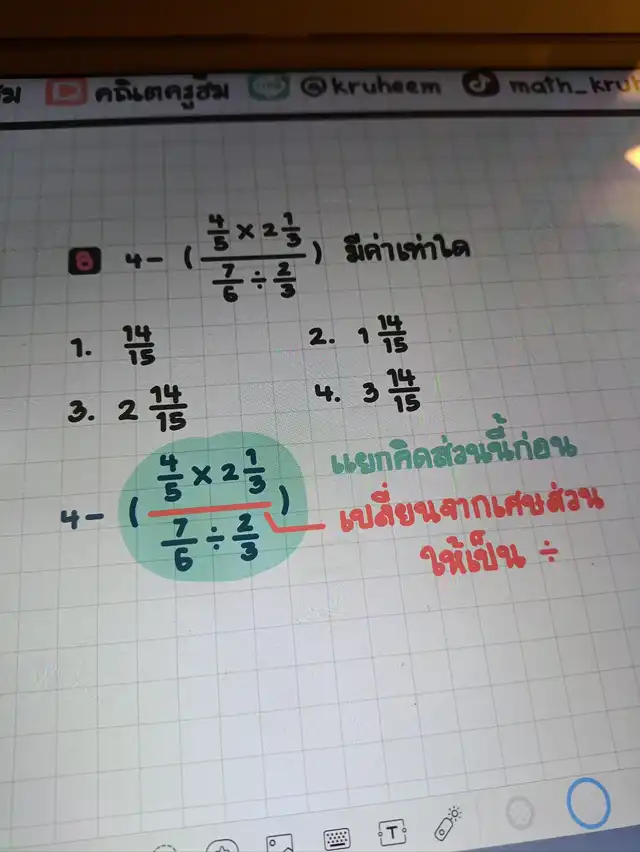 คณิตครูฮีม @kruheem math_kru
8 4 - ( (4/5 × 2 1/3) / (7/6 ÷ 2/3) ) มีค่าเท่าใด
1. 14/15 2. 1 14/15
3. 2 14/15 4. 3 14/15
4 - ( (4/5 × 2 1/3) / (7/6 ÷ 2/3) )
แยกคิดส่วนนี้ก่อน
เปลี่ยนจากเศษส่วน
ให้เป็น ÷
T